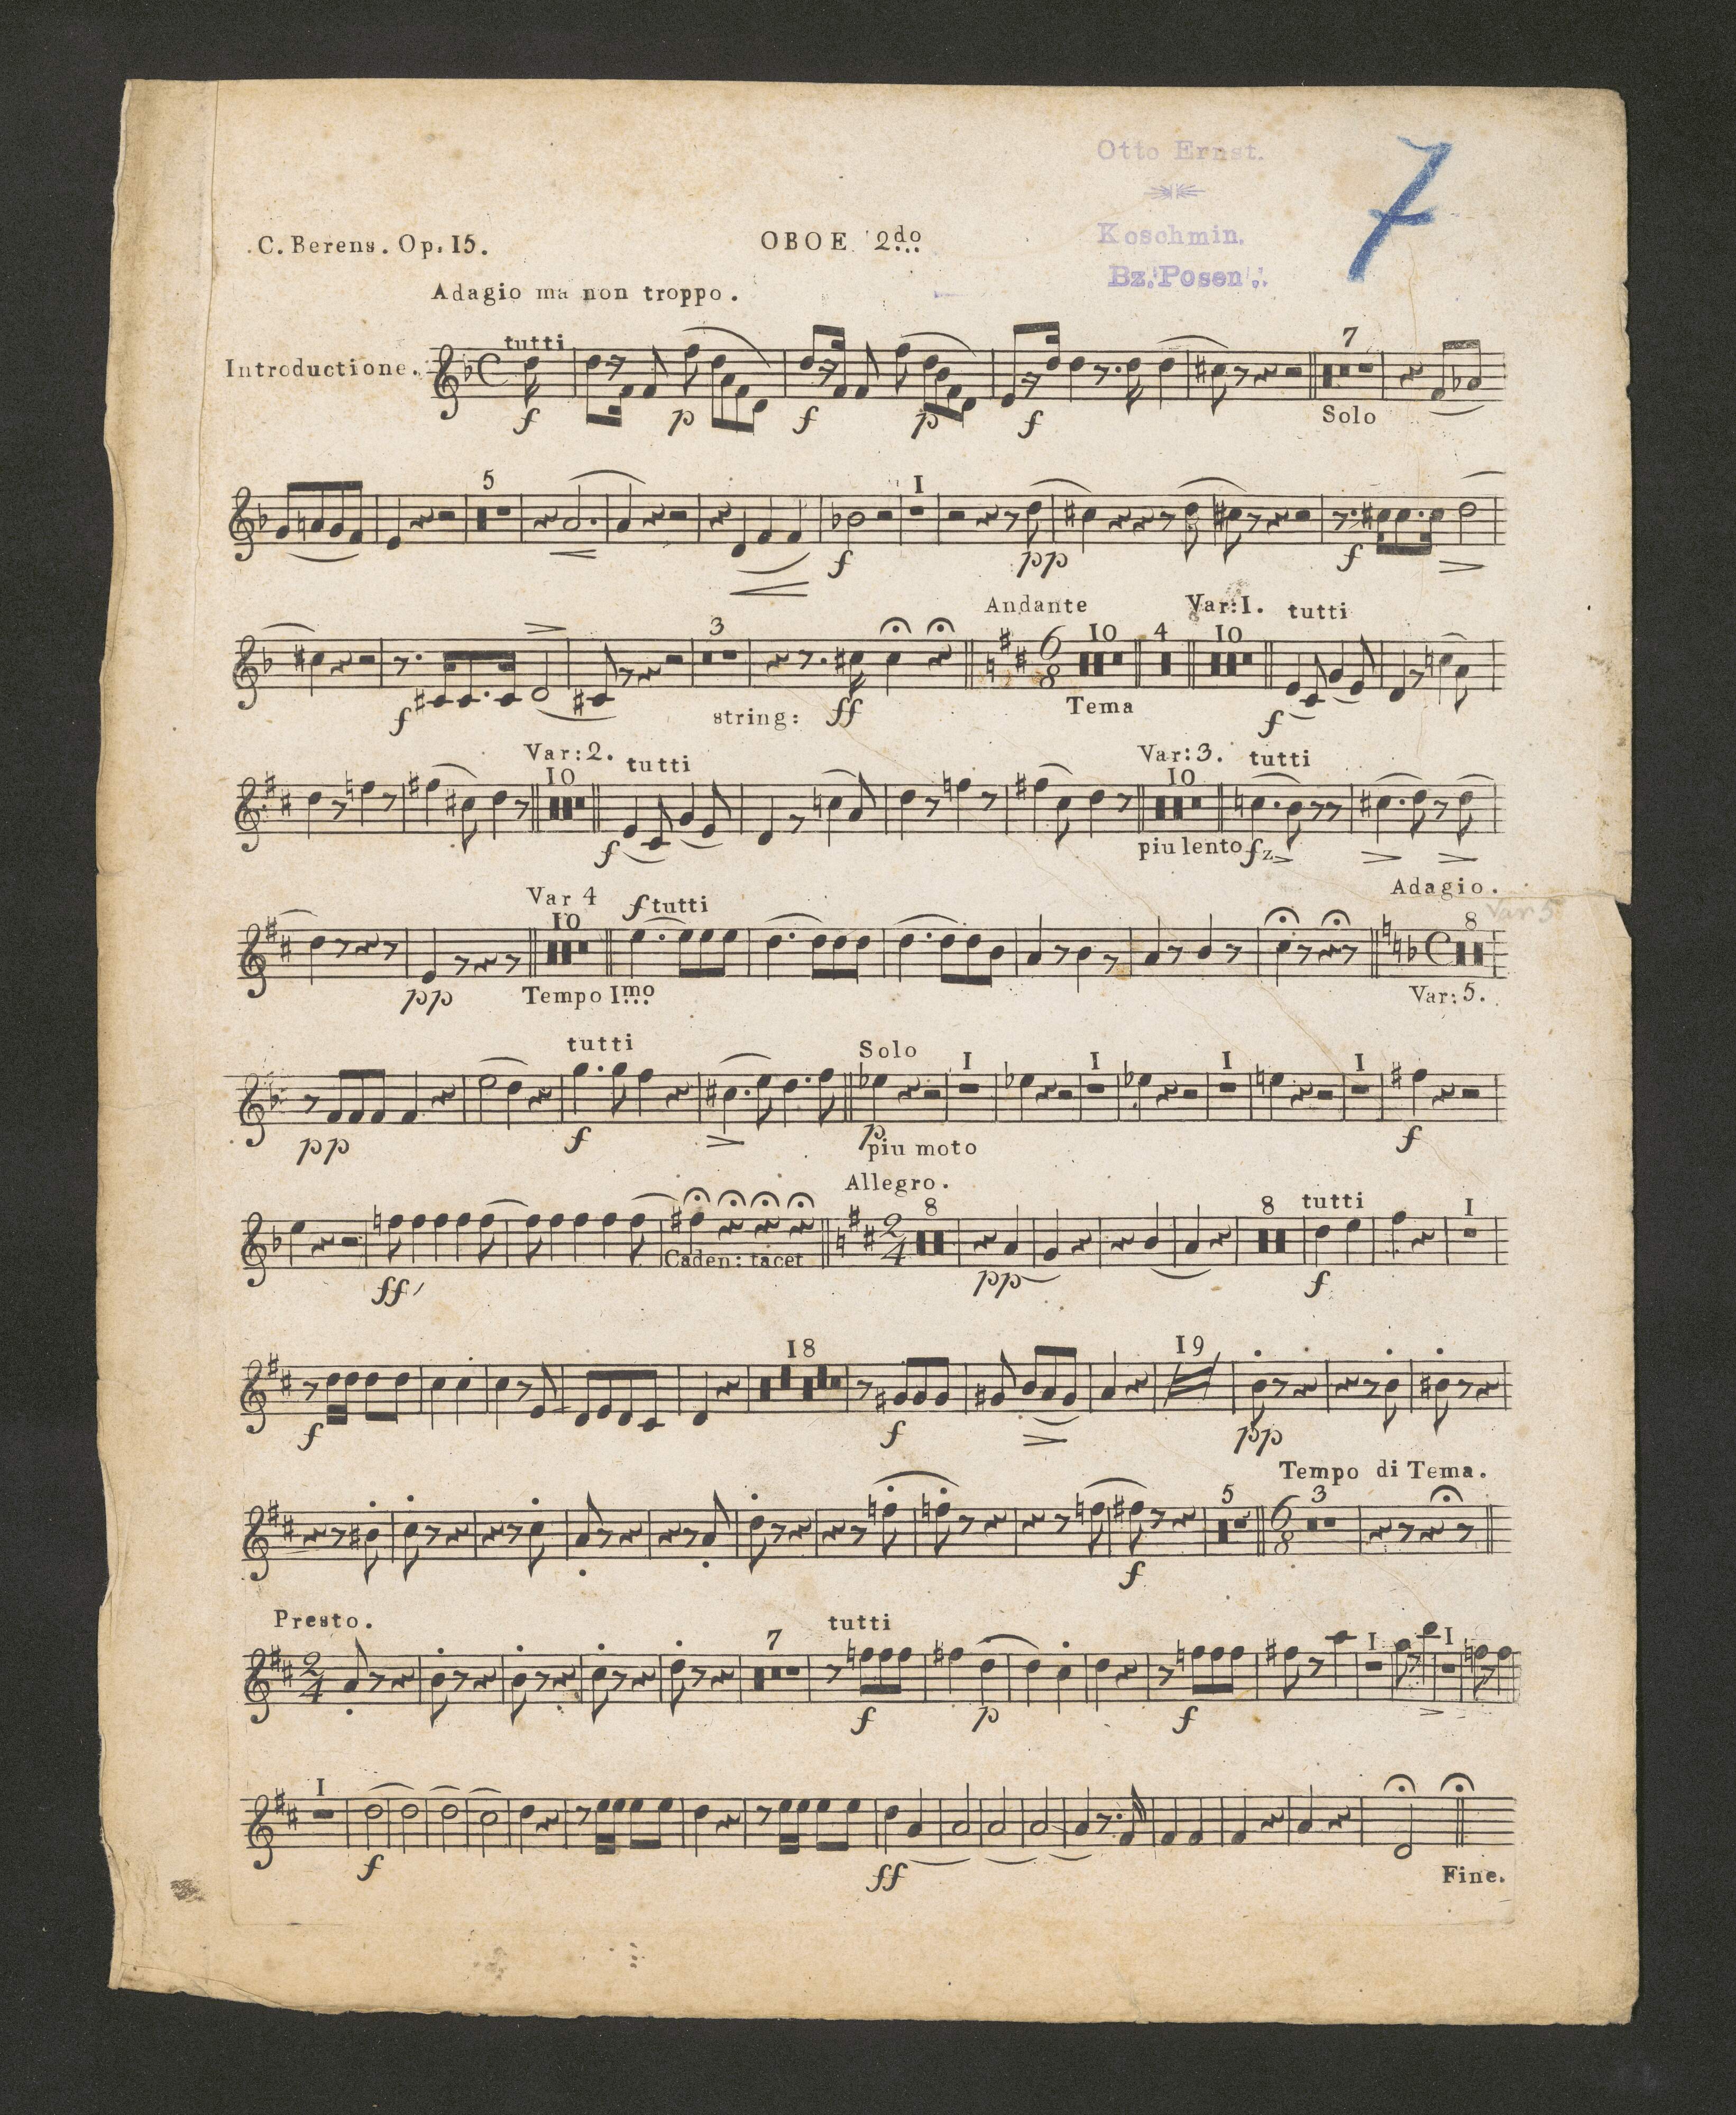 Otto Ernst.
7
Koschmin.
Bz. Posen.
C. Berens. Op. 15.
OBOE 2do
Adagio ma non troppo.
Introductione.
tutti
7
f p f p f
Solo
5
I
f pp f
Andante
Var: I. tutti
3
10 4 10
f string: ff
Tema
f
Var: 2. tutti
10
Var: 3. tutti
10
f
piu lento fz
Var 4 f tutti
10
Adagio.
Var 5
8
pp
Tempo Imo
Var: 5.
tutti
Solo
I I I I
pp f p f
piu moto
Allegro.
8
8 tutti I
Caden: tacet
ff pp f
18
19
f f pp
Tempo di Tema.
5 3
f
Presto.
7
tutti
I I
f p f
I
f ff
Fine.